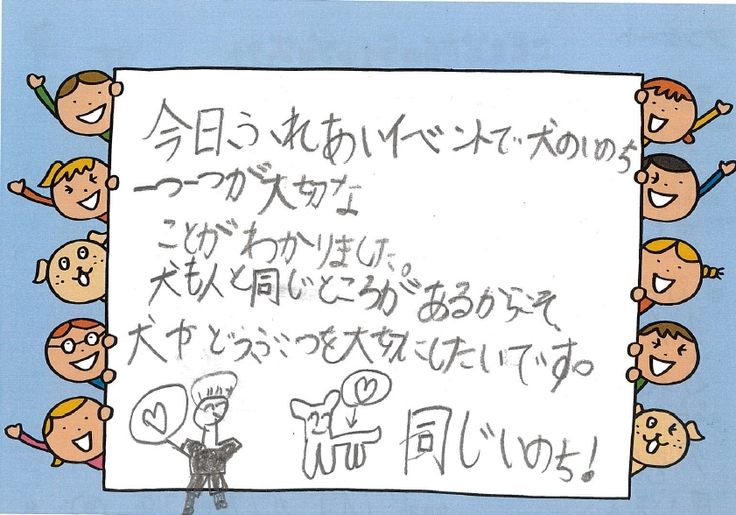 今日、ふれあいイベントで犬のいのち
一つ一つが大切な
ことがわかりました。
犬も人と同じところがあるからこそ、
犬やどうぶつを大切にしたいです。
同じいのち!